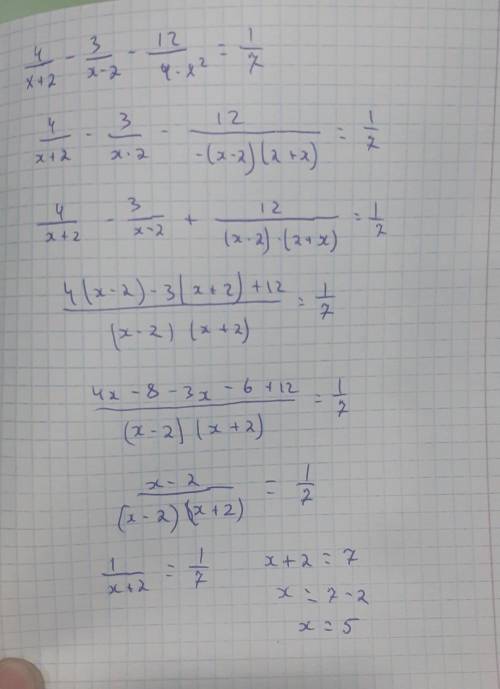 4/(x+2) - 3/(x-2) - 12/(4-x²) = 1/7
4/(x+2) - 3/(x-2) - 12/(-(x-2)(2+2)) = 1/7
4/(x+2) - 3/(x-2) + 12/((x-2)·(2+x)) = 1/7
(4(x-2)-3(x+2)+12)/((x-2)(x+2)) = 1/7
(4x-8-3x-6+12)/((x-2)(x+2)) = 1/7
(x-2)/((x-2)(x+2)) = 1/7
1/(x+2) = 1/7 x+2=7
x=7-2
x=5